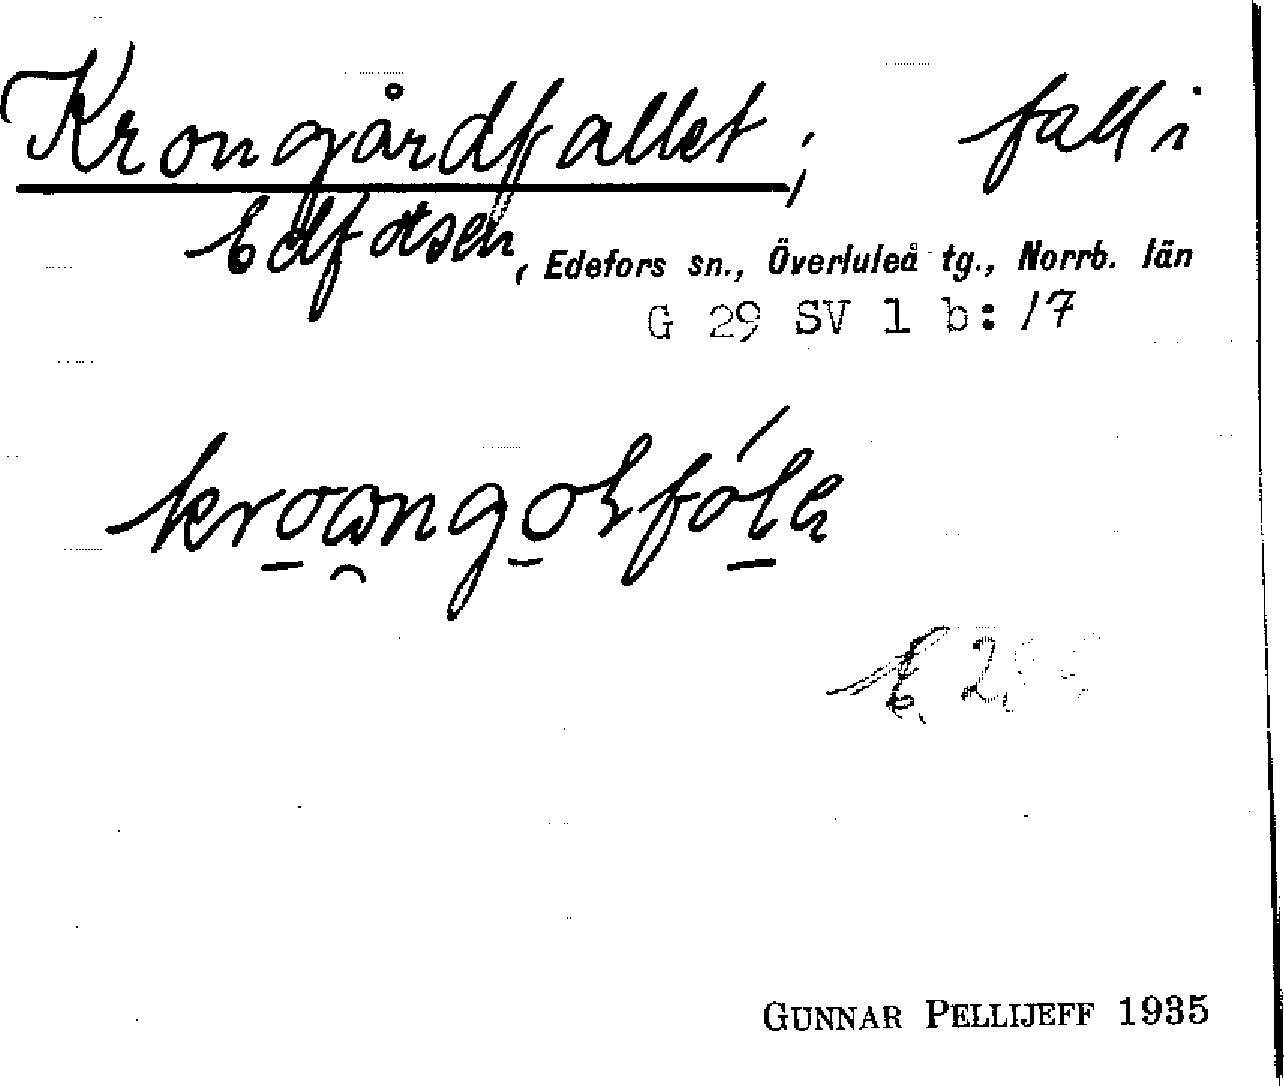 Krongårdfallet, fall i
Edforsen, Edefors sn., Överluleå tg., Norrb. län
G 29 SV 1 b: 17
E.
GUNNAR PELLIJEFF 1935